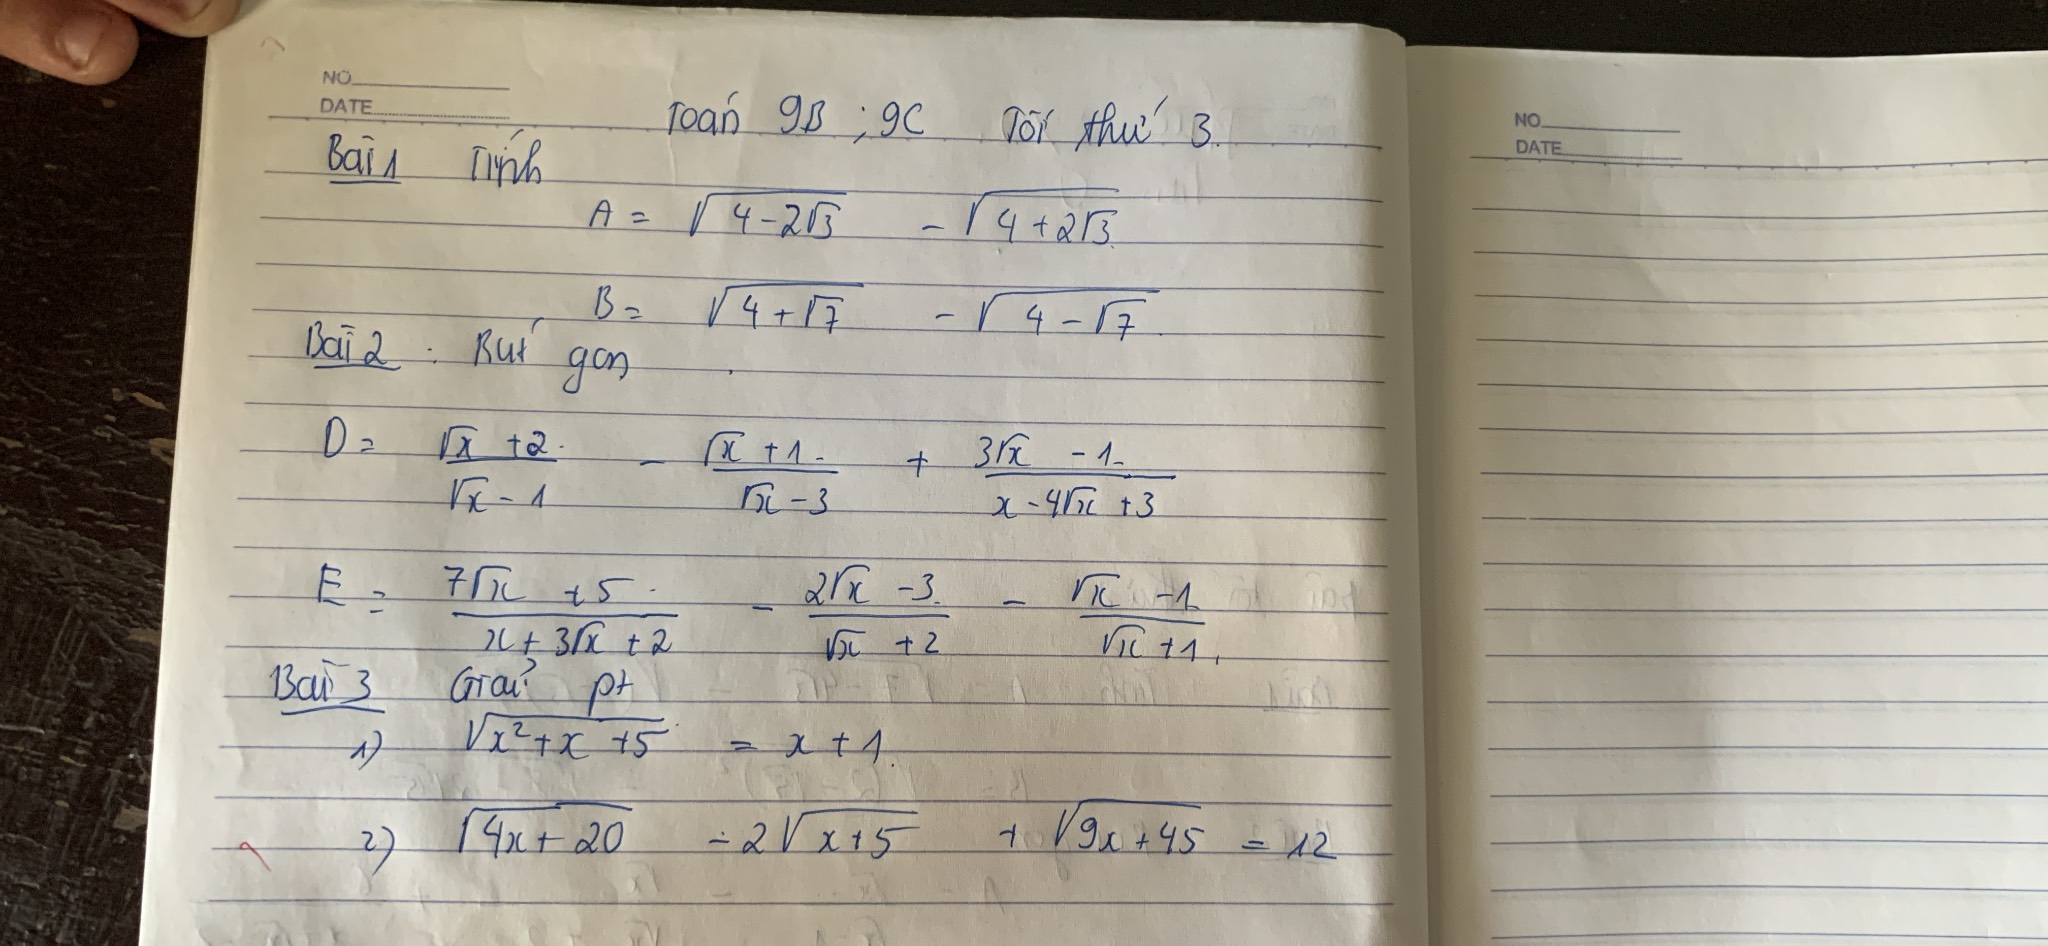 NO
DATE
Toán 9B ; 9C Tối thứ 3.
Bài 1 Tính
A = √(4 - 2√3) - √(4 + 2√3)
B = √(4 + √7) - √(4 - √7)
Bài 2 : Rút gọn
D = (√x + 2)/(√x - 1) - (√x + 1)/(√x - 3) + (3√x - 1)/(x - 4√x + 3)
E = (7√x + 5)/(x + 3√x + 2) - (2√x - 3)/(√x + 2) - (√x - 1)/(√x + 1)
Bài 3 Giải pt
1) √(x² + x + 5) = x + 1
2) √(4x + 20) - 2√(x + 5) + √(9x + 45) = 12
NO
DATE